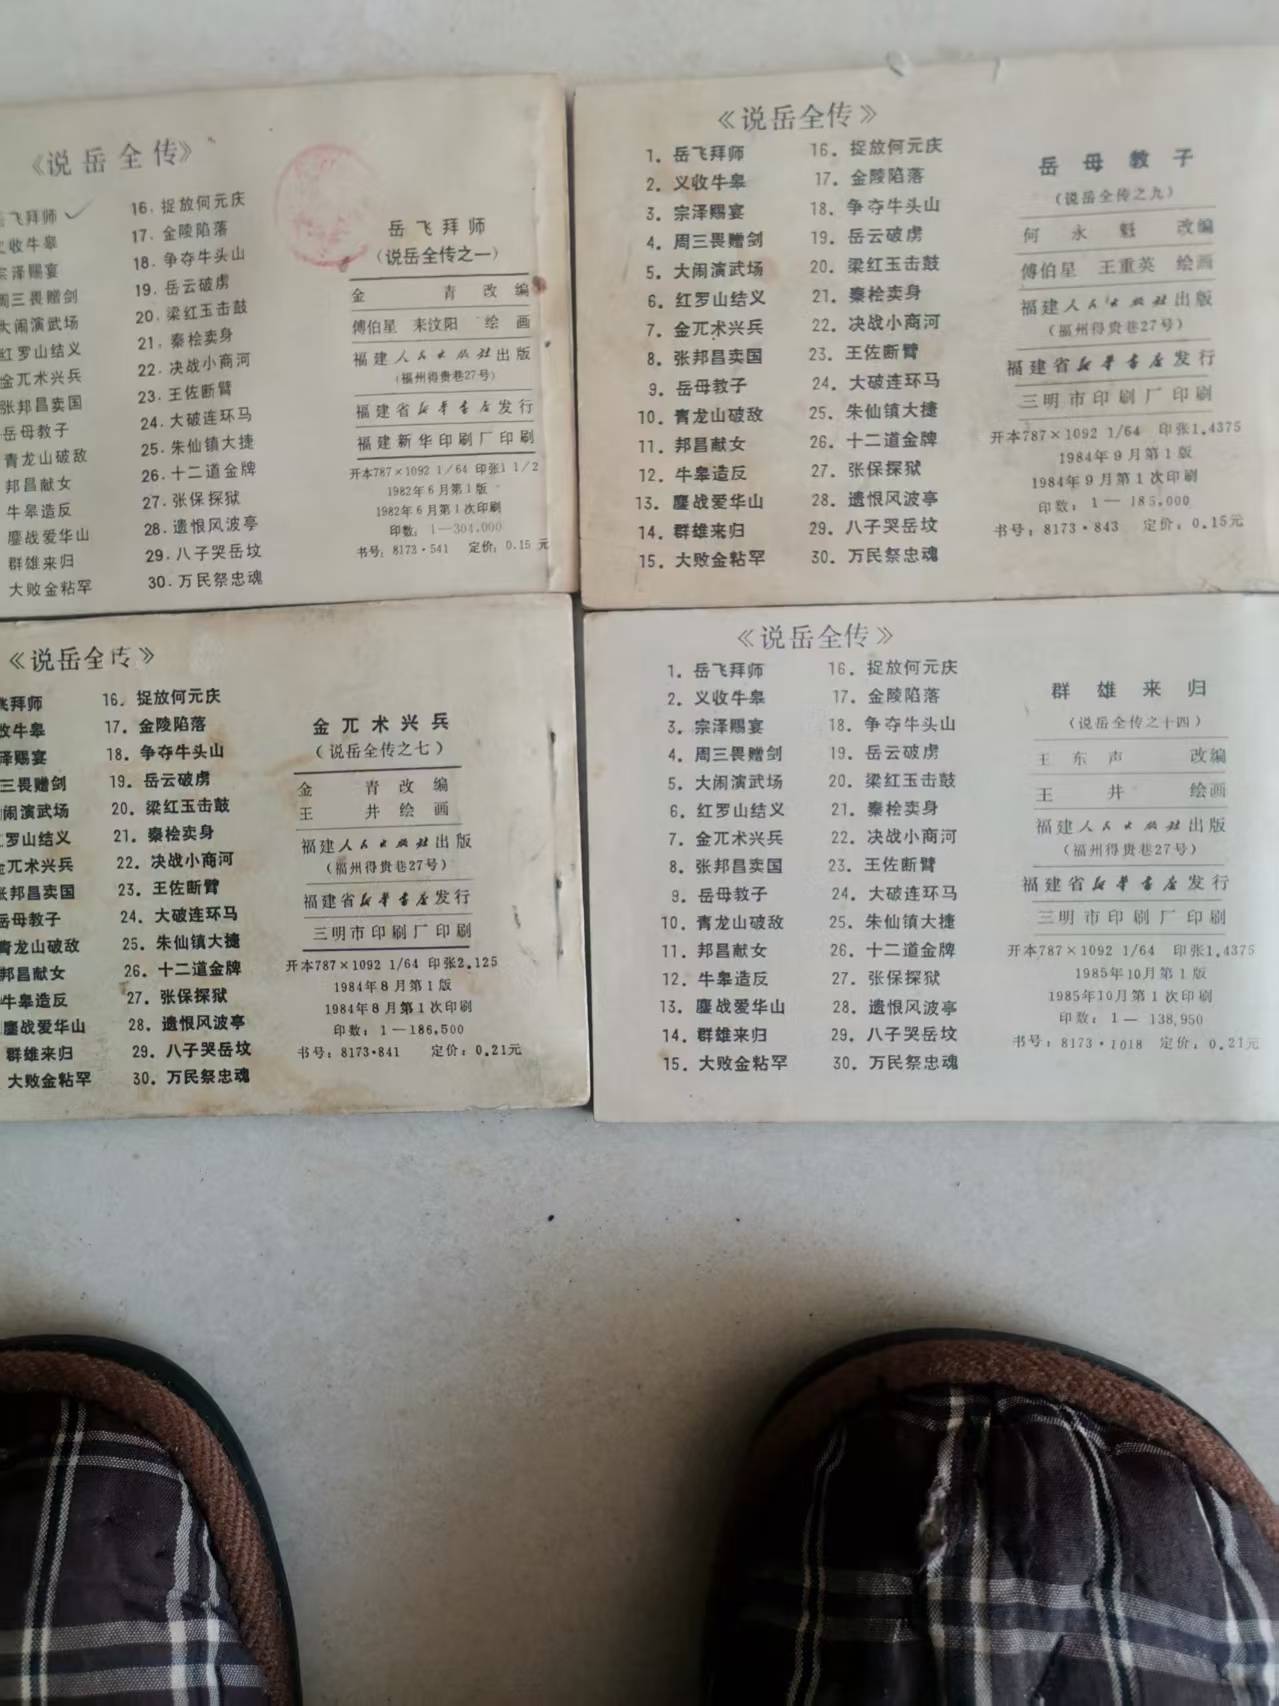 《说岳全传》
飞拜师
收牛皋
宗泽赐宴
周三畏赠剑
大闹演武场
红罗山结义
金兀术兴兵
张邦昌卖国
岳母教子
青龙山破敌
邦昌献女
牛皋造反
鏖战爱华山
群雄来归
大败金粘罕
16.捉放何元庆
17.金陵陷落
18.争夺牛头山
19.岳云破虏
20.梁红玉击鼓
21.秦桧卖身
22.决战小商河
23.王佐断臂
24.大破连环马
25.朱仙镇大捷
26.十二道金牌
27.张保探狱
28.遗恨风波亭
29.八子哭岳坟
30.万民祭忠魂
岳飞拜师
(说岳全传之一)
金 青 改 编
傅伯星 耒汶阳 绘 画
福建人民出版社出版
(福州得贵巷27号)
福建省新华书店发行
福建新华印刷厂印刷
开本787×1092 1/64 印张1 1/2
1982年6月第1版
1982年6月第1次印刷
印数: 1—304,000
书号: 8173·541 定价: 0.15 元
《说岳全传》
1. 岳飞拜师
2. 义收牛皋
3. 宗泽赐宴
4. 周三畏赠剑
5. 大闹演武场
6. 红罗山结义
7. 金兀术兴兵
8. 张邦昌卖国
9. 岳母教子
10. 青龙山破敌
11. 邦昌献女
12. 牛皋造反
13. 鏖战爱华山
14. 群雄来归
15. 大败金粘罕
16. 捉放何元庆
17. 金陵陷落
18. 争夺牛头山
19. 岳云破虏
20. 梁红玉击鼓
21. 秦桧卖身
22. 决战小商河
23. 王佐断臂
24. 大破连环马
25. 朱仙镇大捷
26. 十二道金牌
27. 张保探狱
28. 遗恨风波亭
29. 八子哭岳坟
30. 万民祭忠魂
岳母教子
(说岳全传之九)
何永魁 改编
傅伯星 王重英 绘画
福建人民出版社出版
(福州得贵巷27号)
福建省新华书店发行
三明市印刷厂印刷
开本787×1092 1/64 印张1.4375
1984年9月第1版
1984年9月第1次印刷
印数: 1—185,000
书号: 8173·843 定价: 0.15元
《说岳全传》
飞拜师
收牛皋
泽赐宴
三畏赠剑
闹演武场
罗山结义
金兀术兴兵
张邦昌卖国
岳母教子
青龙山破敌
邦昌献女
牛皋造反
鏖战爱华山
群雄来归
大败金粘罕
16. 捉放何元庆
17. 金陵陷落
18. 争夺牛头山
19. 岳云破虏
20. 梁红玉击鼓
21. 秦桧卖身
22. 决战小商河
23. 王佐断臂
24. 大破连环马
25. 朱仙镇大捷
26. 十二道金牌
27. 张保探狱
28. 遗恨风波亭
29. 八子哭岳坟
30. 万民祭忠魂
金兀术兴兵
(说岳全传之七)
金 青 改 编
王 井 绘 画
福建人民出版社出版
(福州得贵巷27号)
福建省新华书店发行
三明市印刷厂印刷
开本787×1092 1/64 印张2.125
1984年8月第1版
1984年8月第1次印刷
印数: 1—186,500
书号: 8173·841 定价: 0.21元
《说岳全传》
1. 岳飞拜师
2. 义收牛皋
3. 宗泽赐宴
4. 周三畏赠剑
5. 大闹演武场
6. 红罗山结义
7. 金兀术兴兵
8. 张邦昌卖国
9. 岳母教子
10. 青龙山破敌
11. 邦昌献女
12. 牛皋造反
13. 鏖战爱华山
14. 群雄来归
15. 大败金粘罕
16. 捉放何元庆
17. 金陵陷落
18. 争夺牛头山
19. 岳云破虏
20. 梁红玉击鼓
21. 秦桧卖身
22. 决战小商河
23. 王佐断臂
24. 大破连环马
25. 朱仙镇大捷
26. 十二道金牌
27. 张保探狱
28. 遗恨风波亭
29. 八子哭岳坟
30. 万民祭忠魂
群雄来归
(说岳全传之十四)
王东声 改编
王 井 绘画
福建人民出版社出版
(福州得贵巷27号)
福建省新华书店发行
三明市印刷厂印刷
开本787×1092 1/64 印张1.4375
1985年10月第1版
1985年10月第1次印刷
印数: 1—138,950
书号: 8173·1018 定价: 0.21元